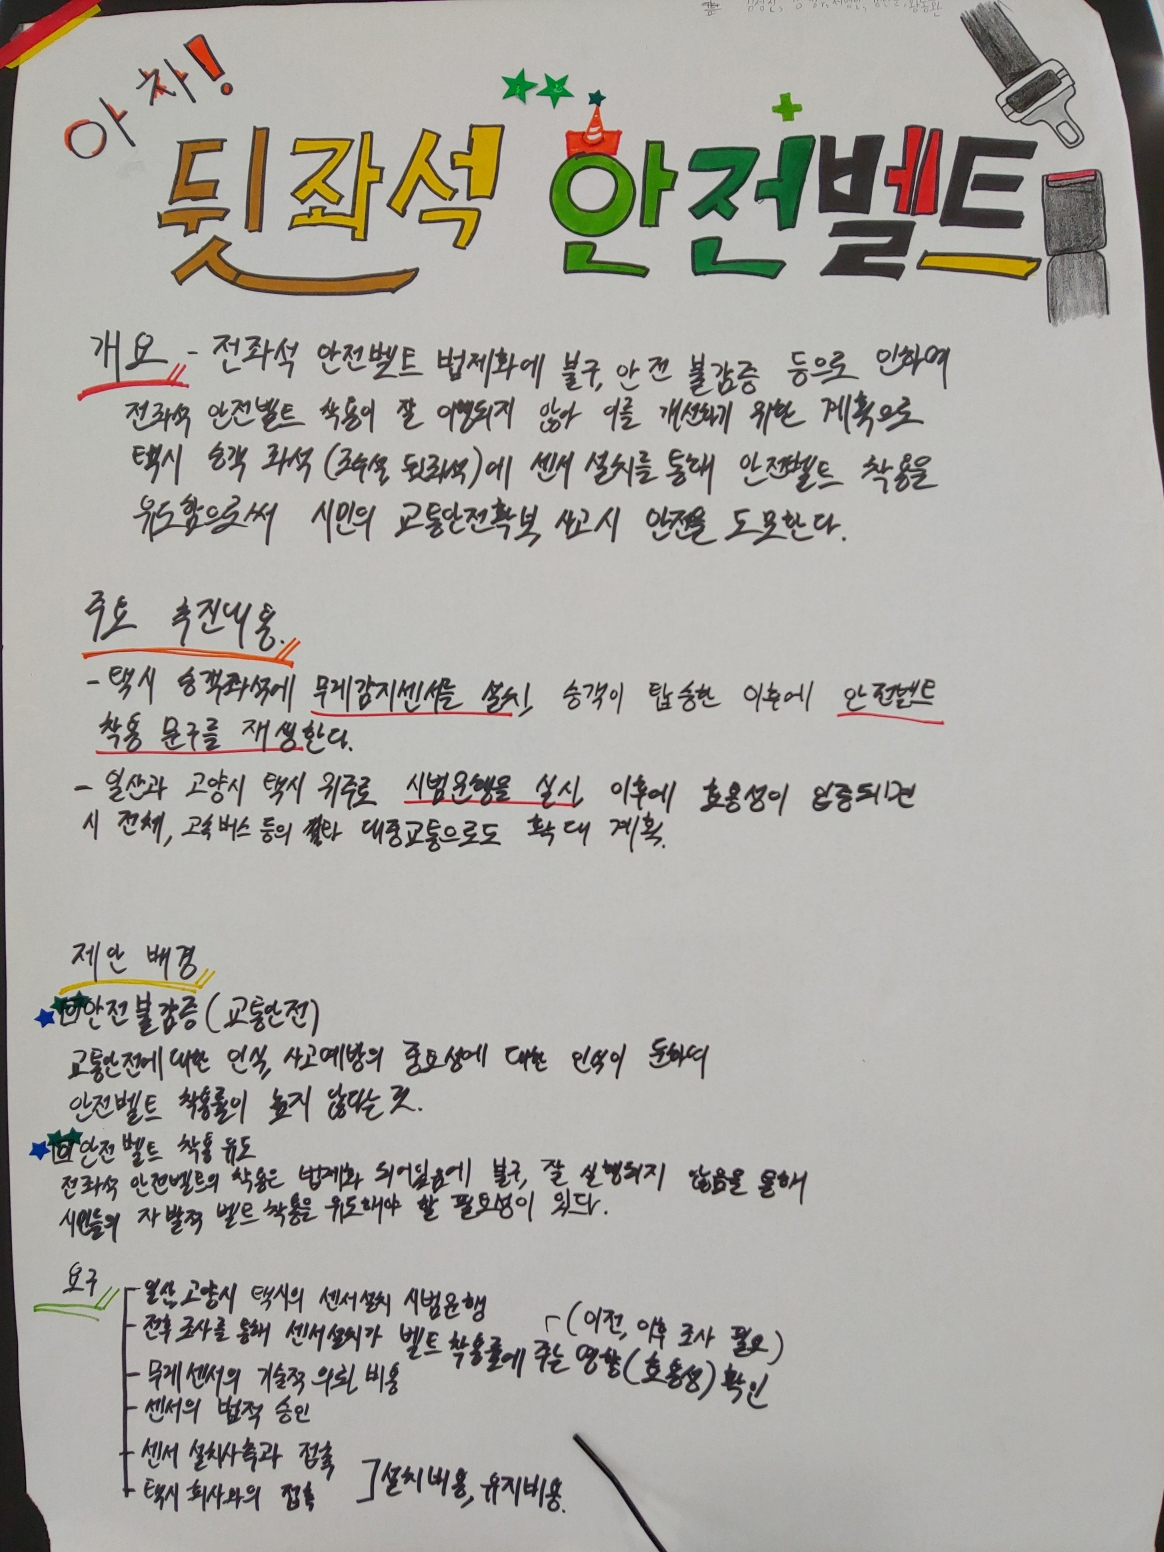 아차!
뒷좌석 안전벨트
개요 - 전좌석 안전벨트 법제화에 불구, 안전 불감증 등으로 인하여
전좌석 안전벨트 착용이 잘 이행되지 않아 이를 개선하기 위한 계획으로
택시 승객 좌석(조수석 뒷좌석)에 센서 설치를 통해 안전벨트 착용을
유도함으로써 시민의 교통안전확보, 사고시 안전을 도모한다.
주요 추진내용.
- 택시 승객좌석에 무게감지센서를 설치, 승객이 탑승한 이후에 안전벨트
착용 문구를 재생한다.
- 일산과 고양시 택시 위주로 시범운행을 실시, 이후에 효용성이 입증되면
시 전체, 고속버스 등의 대중교통으로도 확대 계획.
제안 배경
안전불감증(교통안전)
교통안전에 대한 인식, 사고예방의 중요성에 대한 인식이 둔하여
안전벨트 착용률이 높지 않다는 것.
안전벨트 착용 유도
전좌석 안전벨트의 착용은 법제화 되어있음에 불구, 잘 실행되지 않음을 통해
시민들의 자발적 벨트 착용을 유도해야 할 필요성이 있다.
요구
- 일산, 고양시 택시의 센서설치 시범운행
- 전후 조사를 통해 센서설치가 벨트 착용률에 주는 영향(효용성) 확인
(이전, 이후 조사 필요)
- 무게센서의 기술적 의뢰 비용
- 센서의 법적 승인
- 센서 설치사측과 접촉
- 택시 회사와의 접촉
설치비용, 유지비용.